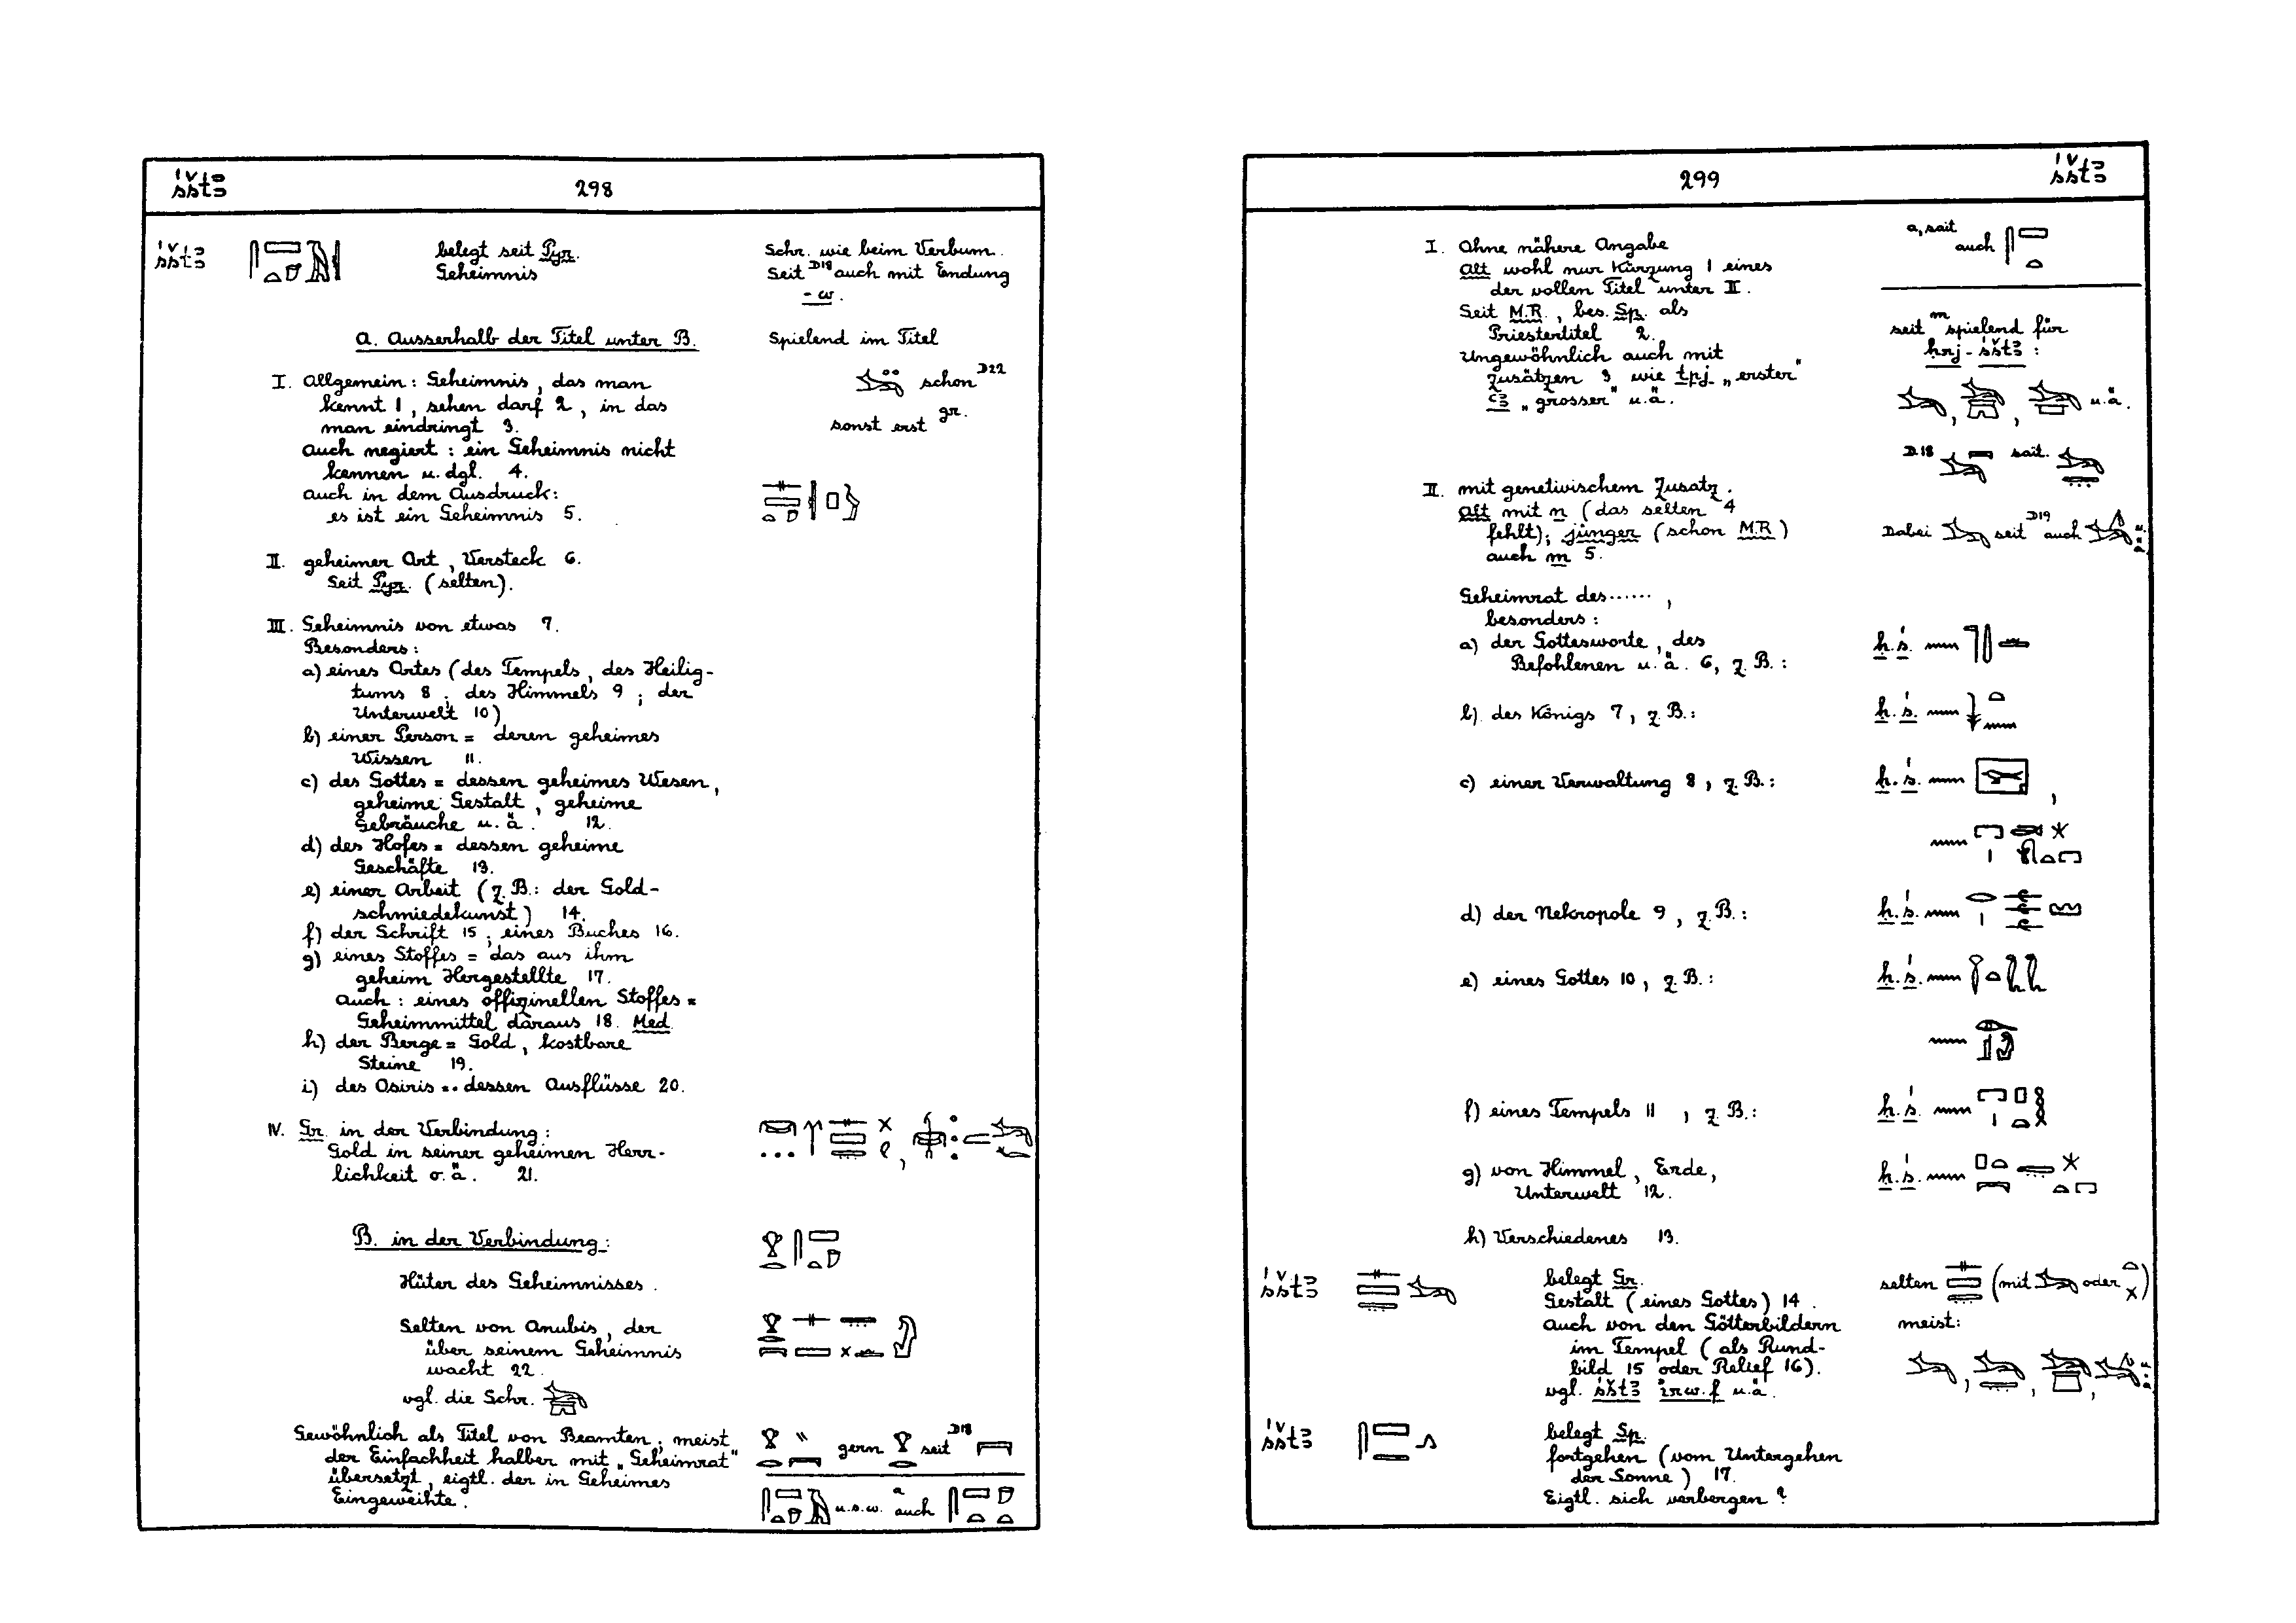 śštꜣ
298
śštꜣ
belegt seit Pyr.
Geheimnis
Schr. wie beim Verbum.
Seit D18 auch mit Endung
-w.
A. Ausserhalb der Titel unter B.
Spielend im Titel
schon D22
sonst erst gr.
I. Allgemein: Geheimnis, das man
kennt 1, sehen darf 2, in das
man eindringt 3.
Auch negiert: ein Geheimnis nicht
kennen u. dgl. 4.
Auch in dem Ausdruck:
es ist ein Geheimnis 5.
II. geheimer Ort, Versteck 6.
Seit Pyr. (selten).
III. Geheimnis von etwas 7.
Besonders:
a) eines Ortes (des Tempels, des Heilig-
tums 8; des Himmels 9; der
Unterwelt 10)
b) einer Person = deren geheimes
Wissen 11.
c) des Gottes = dessen geheimes Wesen,
geheime Gestalt, geheime
Gebräuche u.ä. 12.
d) des Hofes = dessen geheime
Geschäfte 13.
e) einer Arbeit (z.B.: der Gold-
schmiedekunst) 14.
f) der Schrift 15; eines Buches 16.
g) eines Stoffes = das aus ihm
geheim Hergestellte 17.
Auch: eines offizinellen Stoffes =
Geheimmittel daraus 18. Med.
h) der Berge = Gold, kostbare
Steine 19.
i) des Osiris = dessen Ausflüsse 20.
IV. Gr. in der Verbindung:
Gold in seiner geheimen Herr-
lichkeit o.ä. 21.
B. in der Verbindung:
Hüter des Geheimnisses.
Selten von Anubis, der
über seinem Geheimnis
wacht 22.
vgl. die Schr.
Gewöhnlich als Titel von Beamten; meist
der Einfachheit halber mit „Geheimrat"
übersetzt, eigtl. der in Geheimes
Eingeweihte.
gern seit D18
u.s.w. a auch
299
śštꜣ
I. Ohne nähere Angabe
Alt wohl nur Kürzung 1 eines
der vollen Titel unter II.
Seit M.R., bes. Sp. als
Priestertitel 2.
Ungewöhnlich auch mit
Zusätzen 3 wie tpj „erster"
ꜥꜣ „grosser" u.ä.
a, sait
auch
seit m spielend für
ḥrj-śštꜣ:
u.ä.
D18 sait.
II. mit genetivischem Zusatz.
Alt mit n (das selten 4
fehlt); jünger (schon M.R.)
auch m 5.
Dabei seit D19 auch u.ä.
Geheimrat des ......,
besonders:
a) der Gottesworte, des
Befohlenen u.ä. 6, z.B.:
ḥ.ś.
b) des Königs 7, z.B.:
ḥ.ś.
c) einer Verwaltung 8, z.B.:
ḥ.ś.
d) der Nekropole 9, z.B.:
ḥ.ś.
e) eines Gottes 10, z.B.:
ḥ.ś.
f) eines Tempels 11, z.B.:
ḥ.ś.
g) von Himmel, Erde,
Unterwelt 12.
ḥ.ś.
h) Verschiedenes 13.
śštꜣ
belegt Gr.
Gestalt (eines Gottes) 14.
Auch von den Götterbildern
im Tempel (als Rund-
bild 15 oder Relief 16).
vgl. śštꜣ irw.f u.ä.
selten (mit oder )
meist:
śštꜣ
belegt Sp.
fortgehen (vom Untergehen
der Sonne) 17.
Eigtl. sich verbergen?